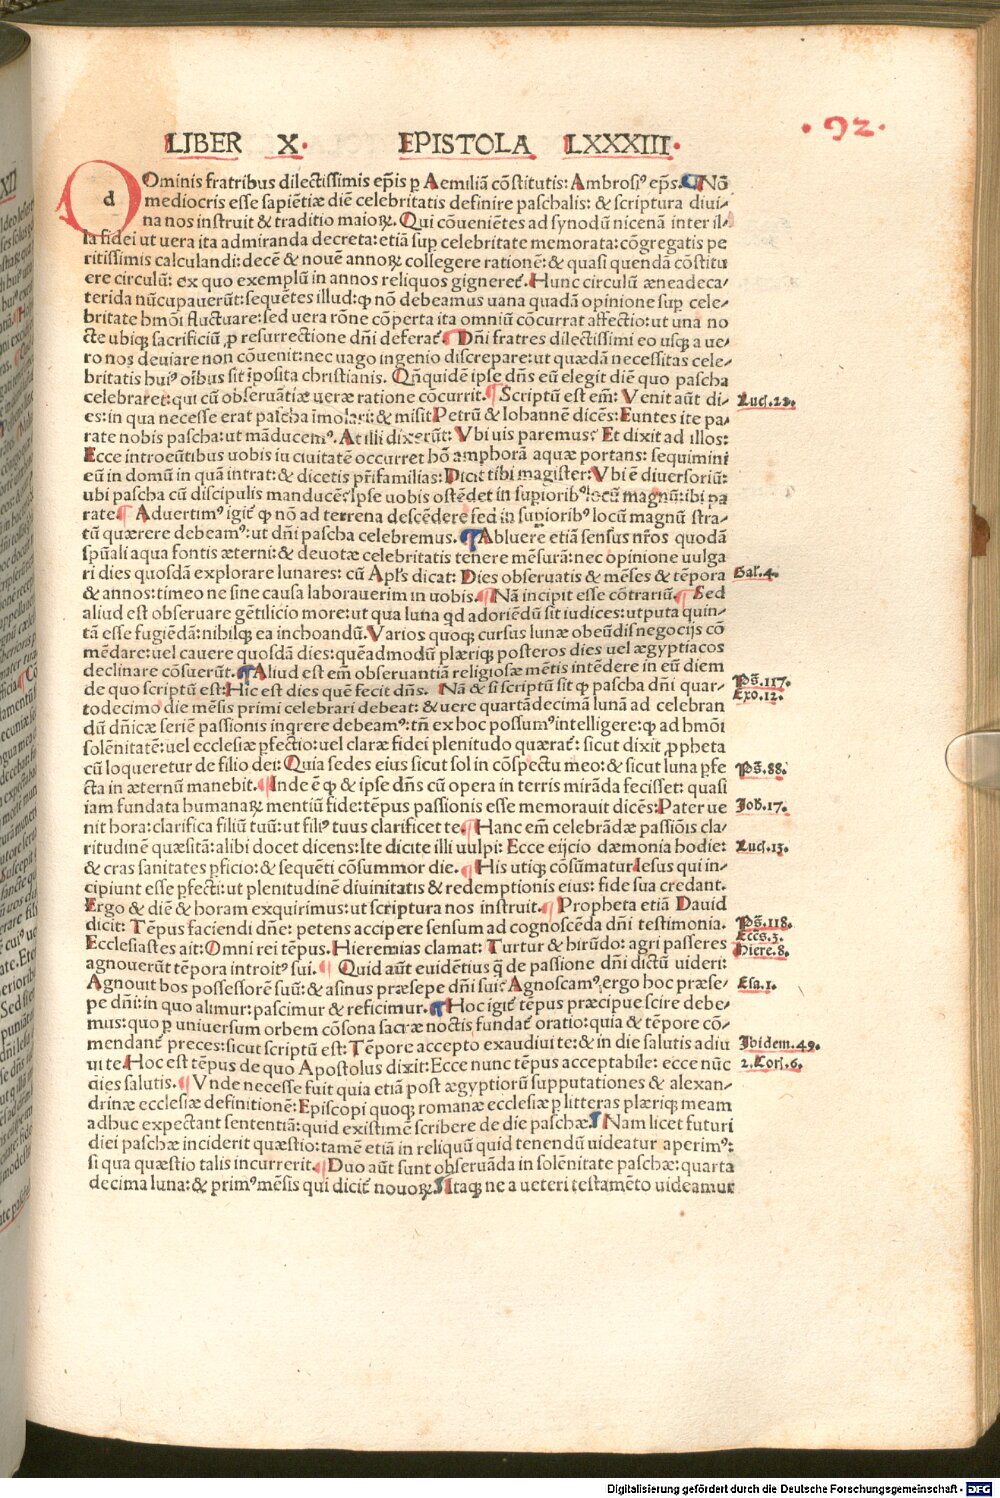 LIBER X. EPISTOLA LXXXIII.
. 92 .
d Ominis fratribus dilectissimis ep̄is ꝑ Aemiliā cōstitutis: Ambrosiꝰ ep̄s. Nō
mediocris esse sapiētiæ diē celebritatis definire paschalis: & scriptura diui⸗
na nos instruit & traditio maioꝝ. Qui cōueniētes ad synodū nicenā inter il⸗
la fidei ut uera ita admiranda decreta: etiā suꝑ celebritate memorata: cōgregatis pe
ritissimis calculandi: decē & nouē annoꝝ collegere rationē: & quasi quendā cōstitu
ere circulū: ex quo exemplū in annos reliquos gigneret̄. Hunc circulū æneadeca⸗
terida nūcupauerūt: sequētes illud: ꝙ nō debeamus uana quadā opinione suꝑ cele⸗
britate hmōi fluctuare: sed uera rōne cōperta ita omniū cōcurrat affectio: ut una no
cte ubiqꝫ sacrificiū ꝓ resurrectione dn̄i deferat̄. Dn̄i fratres dilectissimi eo usqꝫ a ue⸗
ro nos deuiare non cōuenit: nec uago ingenio discrepare: ut quædā necessitas cele⸗
britatis huiꝰ oībus sit īposita christianis. Qn̄quidē ipse dn̄s eū elegit diē quo pascha
celebraret: qui cū obseruātiæ ueræ ratione cōcurrit. Scriptū est em̄: Venit aūt di⸗
Luc. 22.
es: in qua necesse erat pascha īmolari: & misit Petrū & Iohannē dicēs: Euntes ite pa⸗
rate nobis pascha: ut māducemꝰ. At illi dixerūt: Vbi uis paremus? Et dixit ad illos:
Ecce introeūtibus uobis in ciuitatē occurret hō amphorā aquæ portans: sequimini
eū in domū in quā intrat: & dicetis pr̄ifamilias: Dicit tibi magister: Vbi ē diuersoriū:
ubi pascha cū discipulis manducē? Ipse uobis ostēdet in suꝑioribꝰ locū magnū: ibi pa
rate. Aduertimꝰ igit̄ ꝙ nō ad terrena descēdere sed in suꝑioribꝰ locū magnū stra⸗
tū quærere debeamꝰ: ut dn̄i pascha celebremus. Abluere etiā sensus nr̄os quodā
spūali aqua fontis æterni: & deuotæ celebritatis tenere mēsurā: nec opinione uulga
ri dies quosdā explorare lunares: cū Apl's dicat: Dies obseruatis & mēses & tēpora
Gal. 4.
& annos: timeo ne sine causa laborauerim in uobis. Nā incipit esse cōtrariū. Sed
aliud est obseruare gētilicio more: ut qua luna qd adoriēdū sit iudices: utputa quin⸗
tā esse fugiēdā: nihilqꝫ ea inchoandū. Varios quoqꝫ cursus lunæ obeūdis negocijs cō
mēdare: uel cauere quosdā dies: quēadmodū plæriqꝫ posteros dies uel ægyptiacos
declinare cōsuerūt. Aliud est em̄ obseruantiā religiosæ mētis intēdere in eū diem
de quo scriptū est: Hic est dies quē fecit dn̄s. Nā & si scriptū sit ꝙ pascha dn̄i quar⸗
Ps. 117.
Exo. 12.
todecimo die mēsis primi celebrari debeat: & uere quartādecimā lunā ad celebran
dū dn̄icæ seriē passionis inqrere debeamꝰ: tn̄ ex hoc possumꝰ intelligere: ꝙ ad hmōi
solēnitatē: uel ecclesiæ ꝑfectio: uel claræ fidei plenitudo quærat̄: sicut dixit ꝓpheta
cū loqueretur de filio dei: Quia sedes eius sicut sol in cōspectu meo: & sicut luna ꝑfe
Ps. 88.
cta in æternū manebit. Inde ē ꝙ & ipse dn̄s cū opera in terris mirāda fecisset: quasi
iam fundata humanaꝝ mentiū fide: tēpus passionis esse memorauit dicēs: Pater ue
Joh. 17.
nit hora: clarifica filiū tuū: ut filiꝰ tuus clarificet te. Hanc em̄ celebrādæ passiōis cla⸗
ritudinē quæsitā: alibi docet dicens: Ite dicite illi uulpi: Ecce eijcio dæmonia hodie:
Luc. 13.
& cras sanitates ꝑficio: & sequēti cōsummor die. His utiqꝫ cōsūmatur Iesus qui in⸗
cipiunt esse ꝑfecti: ut plenitudinē diuinitatis & redemptionis eius: fide sua credant.
Ergo & diē & horam exquirimus: ut scriptura nos instruit. Propheta etiā Dauid
dicit: Tēpus faciendi dn̄e: petens accipere sensum ad cognoscēda dn̄i testimonia.
Ps. 118.
Ecclesiastes ait: Omni rei tēpus. Hieremias clamat: Turtur & hirūdo: agri passeres
Eccs. 3.
Hiere. 8.
agnouerūt tēpora introitꝰ sui. Quid aūt euidētius q̄ de passione dn̄i dictū uideri:
Agnouit bos possessorē suū: & asinus præsepe dn̄i sui? Agnoscamꝰ ergo hoc præse⸗
Esa. 1.
pe dn̄i: in quo alimur: pascimur & reficimur. Hoc igit̄ tēpus præcipue scire debe⸗
mus: quo ꝑ uniuersum orbem cōsona sacræ noctis fundat̄ oratio: quia & tēpore cō⸗
mendant̄ preces: sicut scriptū est: Tēpore accepto exaudiui te: & in die salutis adiu
Ibidem. 49.
ui te. Hoc est tēpus de quo Apostolus dixit: Ecce nunc tēpus acceptabile: ecce nūc
2. Cori. 6.
dies salutis. Vnde necesse fuit quia etiā post ægyptiorū supputationes & alexan⸗
drinæ ecclesiæ definitionē: Episcopi quoqꝫ romanæ ecclesiæ ꝑ litteras plæriqꝫ meam
adhuc expectant sententiā: quid existimē scribere de die paschæ. Nam licet futuri
diei paschæ inciderit quæstio: tamē etiā in reliquū quid tenendū uideatur aperimꝰ:
si qua quæstio talis incurrerit. Duo aūt sunt obseruāda in solēnitate paschæ: quarta
decima luna: & primꝰ mēsis qui dicit̄ nouoꝝ. Itaqꝫ ne a ueteri testamēto uideamur
Digitalisierung gefördert durch die Deutsche Forschungsgemeinschaft - DFG